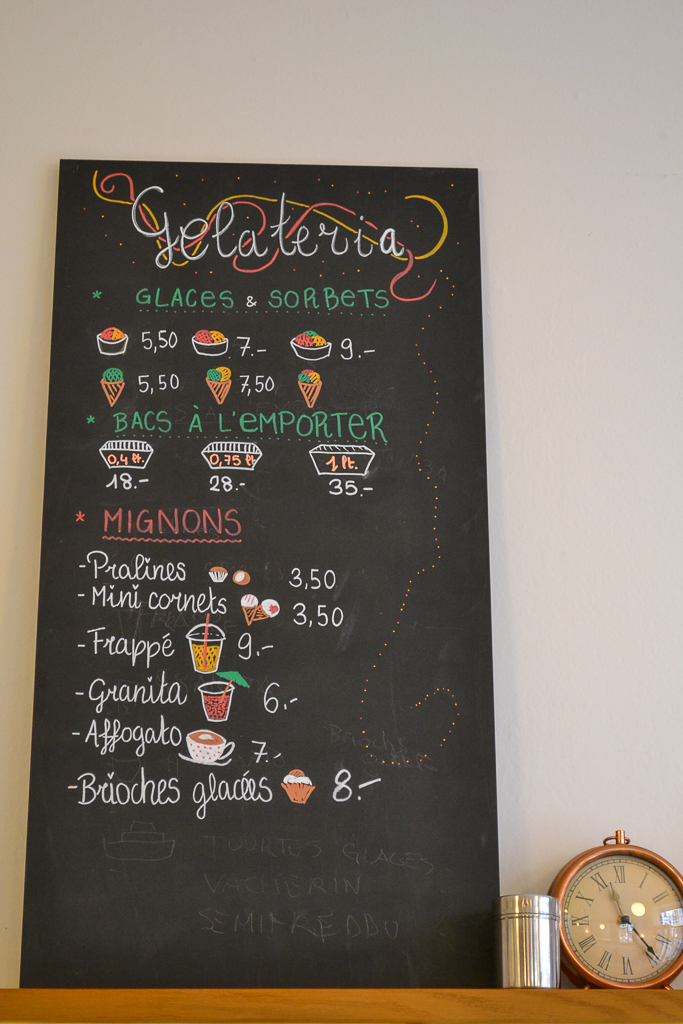 Gelateria
* GLACES & SORBETS
5,50 7.- 9.-
5,50 7,50
* BACS À L'EMPORTER
0,4 lt. 0,75 lt. 1 lt.
18.- 28.- 35.-
* MIGNONS
-Pralines 3,50
-Mini cornets 3,50
-Frappé 9.-
-Granita 6.-
-Affogato 7.-
-Brioches glacées 8.-
TOURTES GLACÉES
VACHERIN
XII